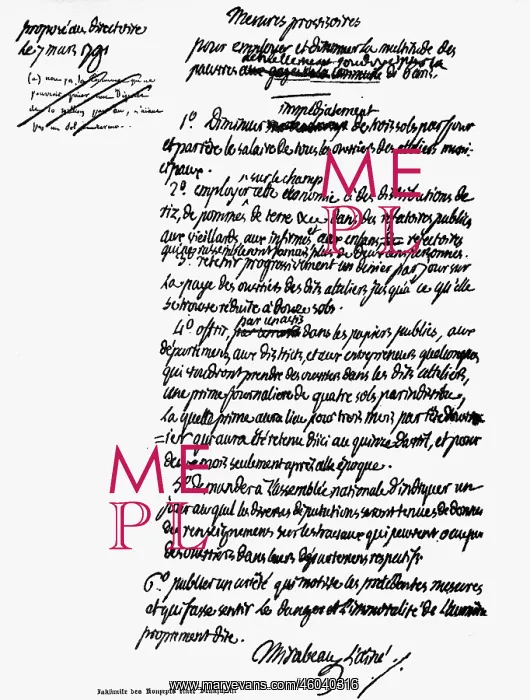 proposé au directoire
le 7 mars 1791
Mesures provisoires
pour employer et diminuer la multitude des
pauvres de Paris.
impédiatement
1° Diminuer de trois sols par jour
et par tête le salaire de tous les ouvriers des ateliers muni-
cipaux.
sur le champ
2° employer cette économie à des distributions de
riz, de pommes de terre dans des réfectoires publics
aux vieillards, aux infirmes et aux enfans, réfectoires
qui ne rassembleront jamais plus de deux cens personnes.
3° retenir progressivement un denier par jour sur
la paye des ouvriers des dits ateliers jusqu'à ce qu'elle
se trouve réduite à douze sols.
par un avis
4° offrir, dans les papiers publics, aux
départemens, aux districts, et aux entrepreneurs quelconques
qui voudront prendre des ouvriers dans les dits ateliers,
une prime journalière de quatre sols par individu,
la quelle prime aura lieu pour trois mois par
qui aura été retenu d'ici au quinze d'avril, et pour
deux mois seulement après cette époque.
5° Demander à l'assemblée nationale d'indiquer un
jour au quel les diverses députations seront tenues de donner
des renseignemens sur les travaux qui peuvent occuper
des ouvriers dans leurs départemens respectifs.
6° publier un arrêté qui motive les précédentes mesures
et qui fasse sentir le danger et l'immoralité de l'aumône
proprement dite.
Mirabeau l'aîné.
ME
PL
ME
PL
www.maryevans.com/46040316